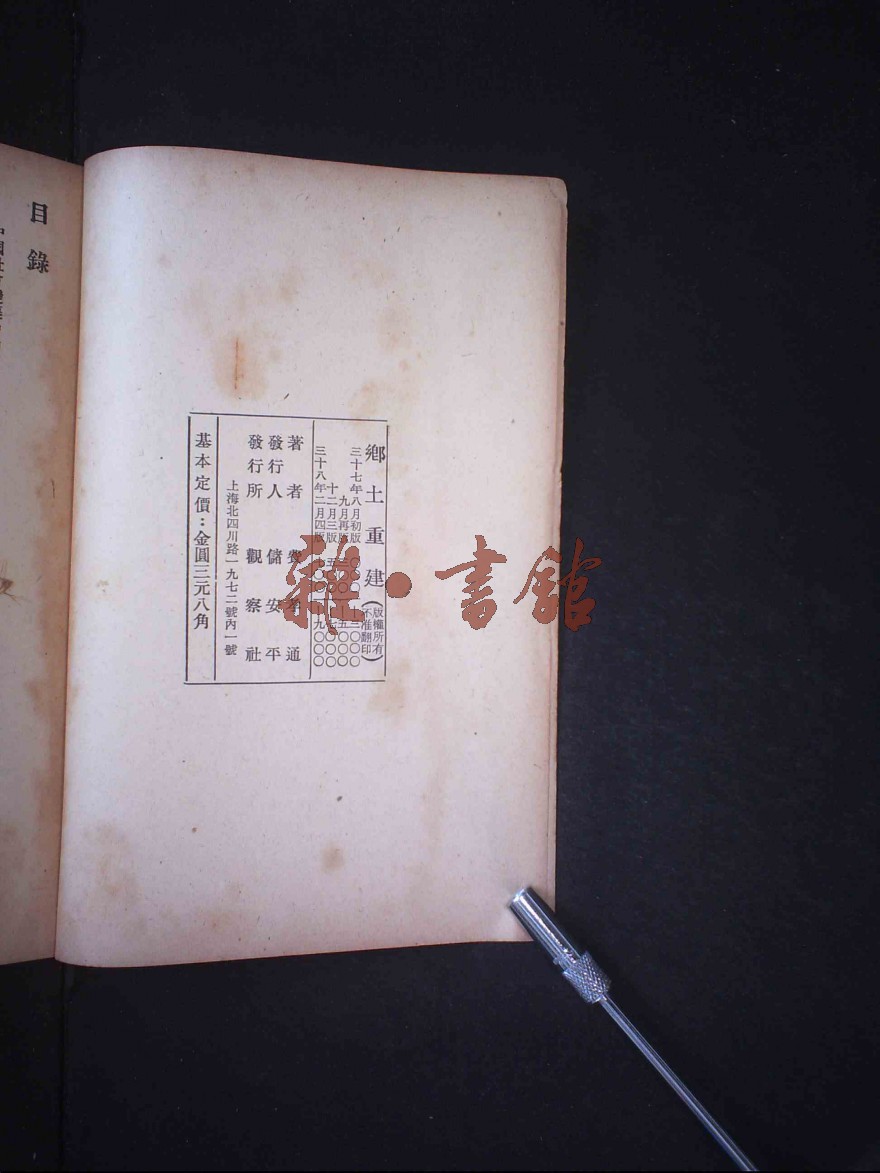 鄉土重建(版權所有不准翻印)
三十七年八月初版
九月再版
十二月三版
三十八年二月四版
著者 費孝通
發行人 儲安平
發行所 觀察社
上海北四川路一九七二號內一號
基本定價：金圓三元八角
目錄
雜·書館